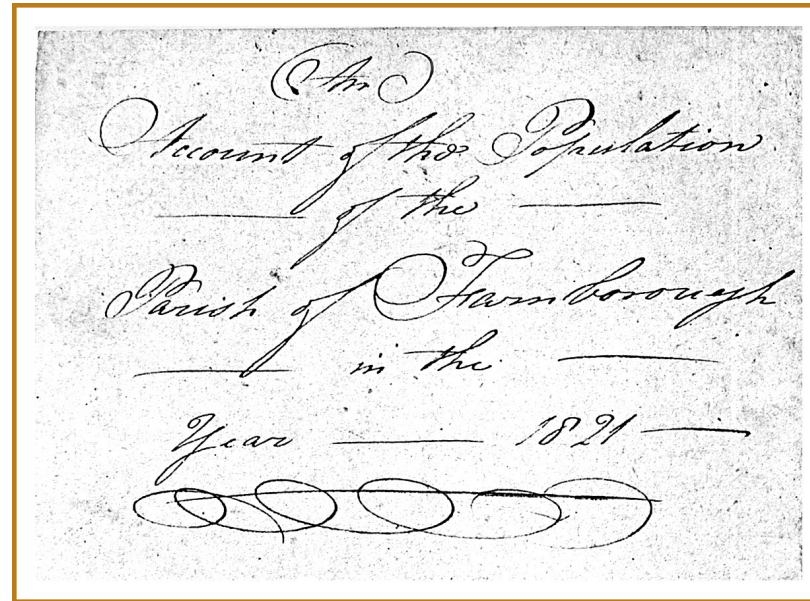 An
Account of the Population
of the
Parish of Farnborough
in the
Year 1821